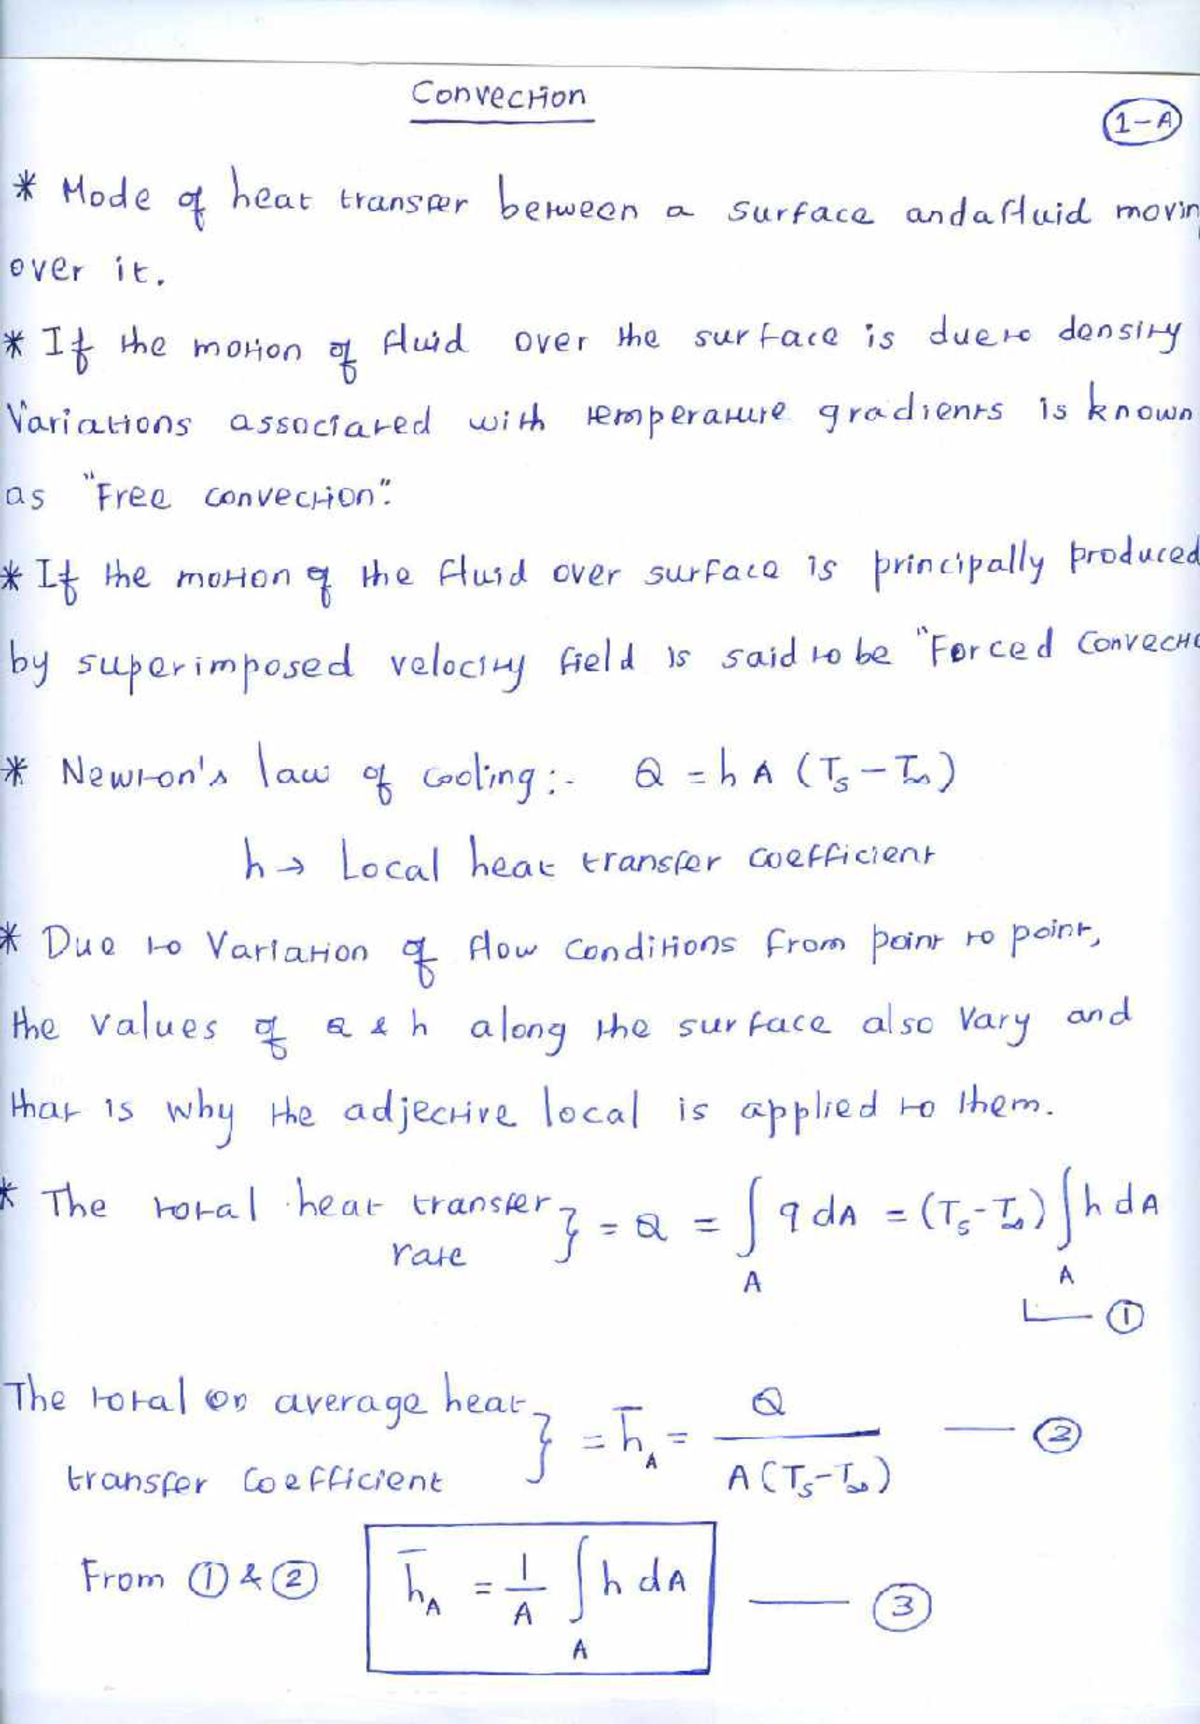 Convection
1-A
* Mode of heat transfer between a surface and a fluid movin
over it.
* If the motion of fluid over the surface is due to density
Variations associated with temperature gradients is known
as "Free convection".
* If the motion of the fluid over surface is principally produced
by superimposed velocity field is said to be "Forced Convectio
* Newton's law of cooling:- Q = h A (Ts - T∞)
h → Local heat transfer coefficient
* Due to Variation of flow conditions from point to point,
the values of Q & h along the surface also vary and
that is why the adjective local is applied to them.
* The total heat transfer rate } = Q = ∫_A q dA = (Ts - T∞) ∫_A h dA
①
The total or average heat transfer coefficient } = h̄_A = Q / A(Ts - T∞) — ②
From ① & ② h̄_A = 1/A ∫_A h dA — ③